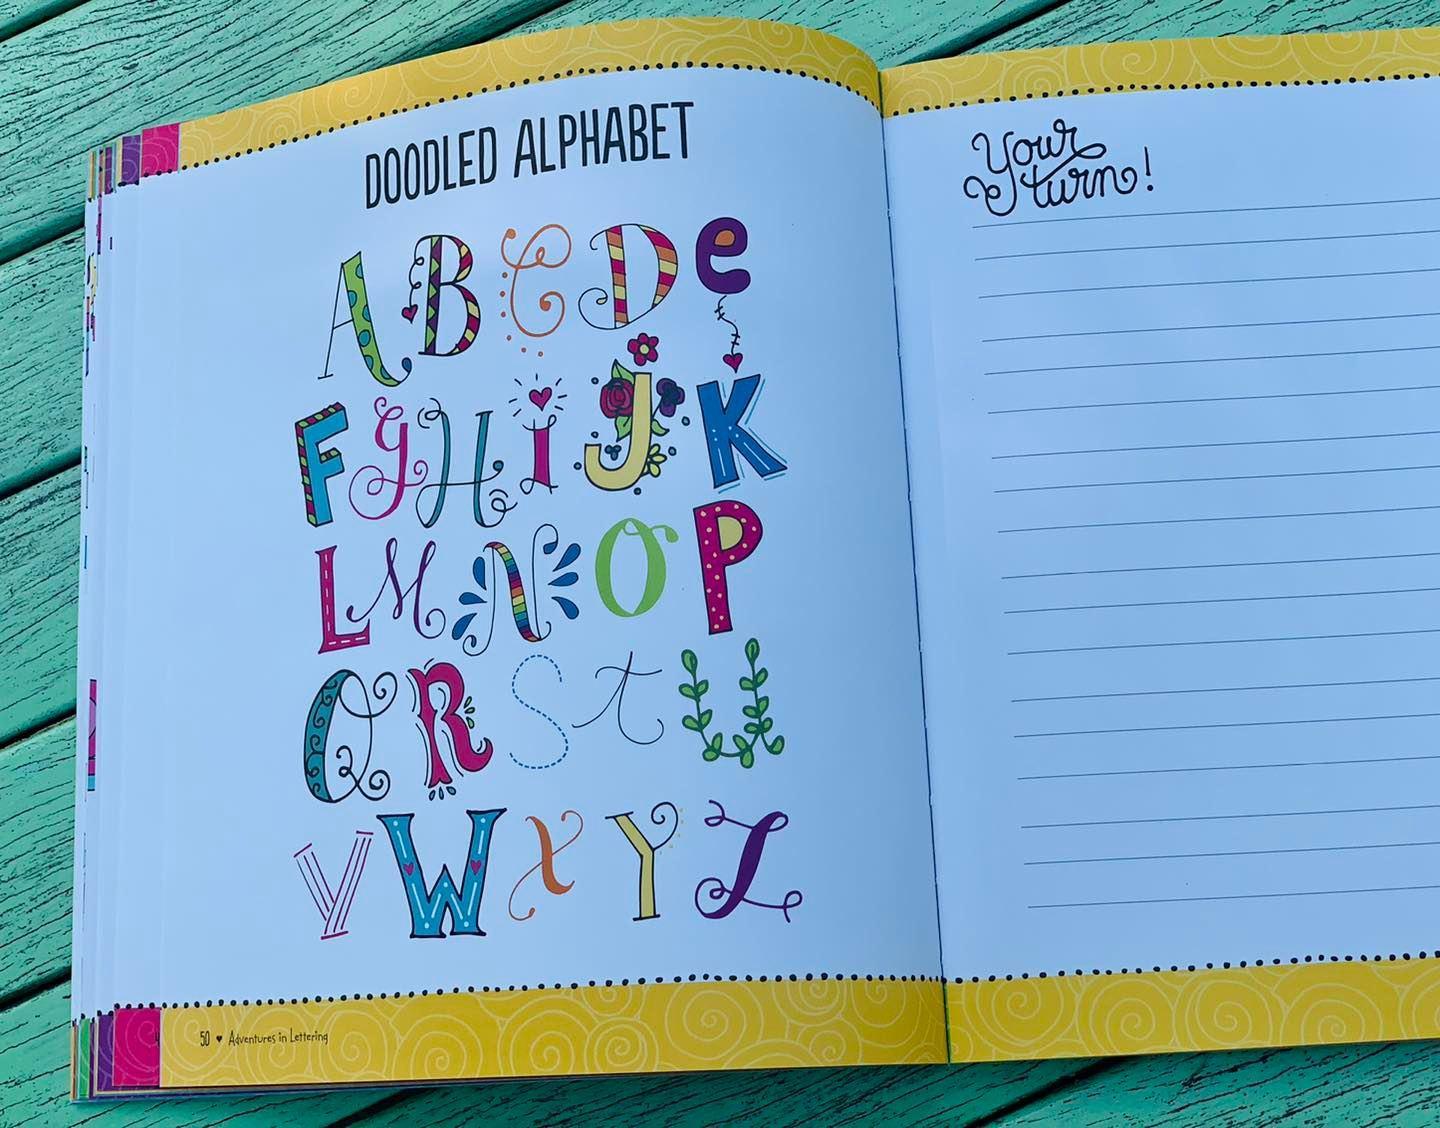 DOODLED ALPHABET
A B C D e
F G H I J K
L M N O P
Q R S t U
V W X Y Z
50 ♥ Adventures in Lettering
Your
turn!